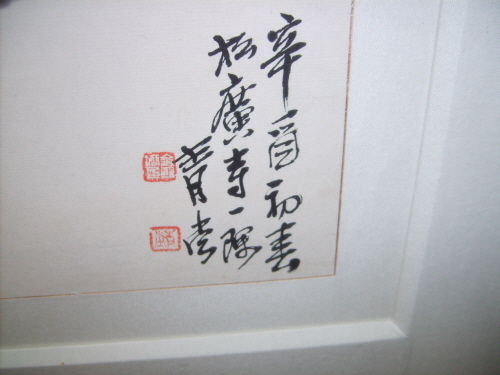 辛酉初春
松廣寺一隅
青堂